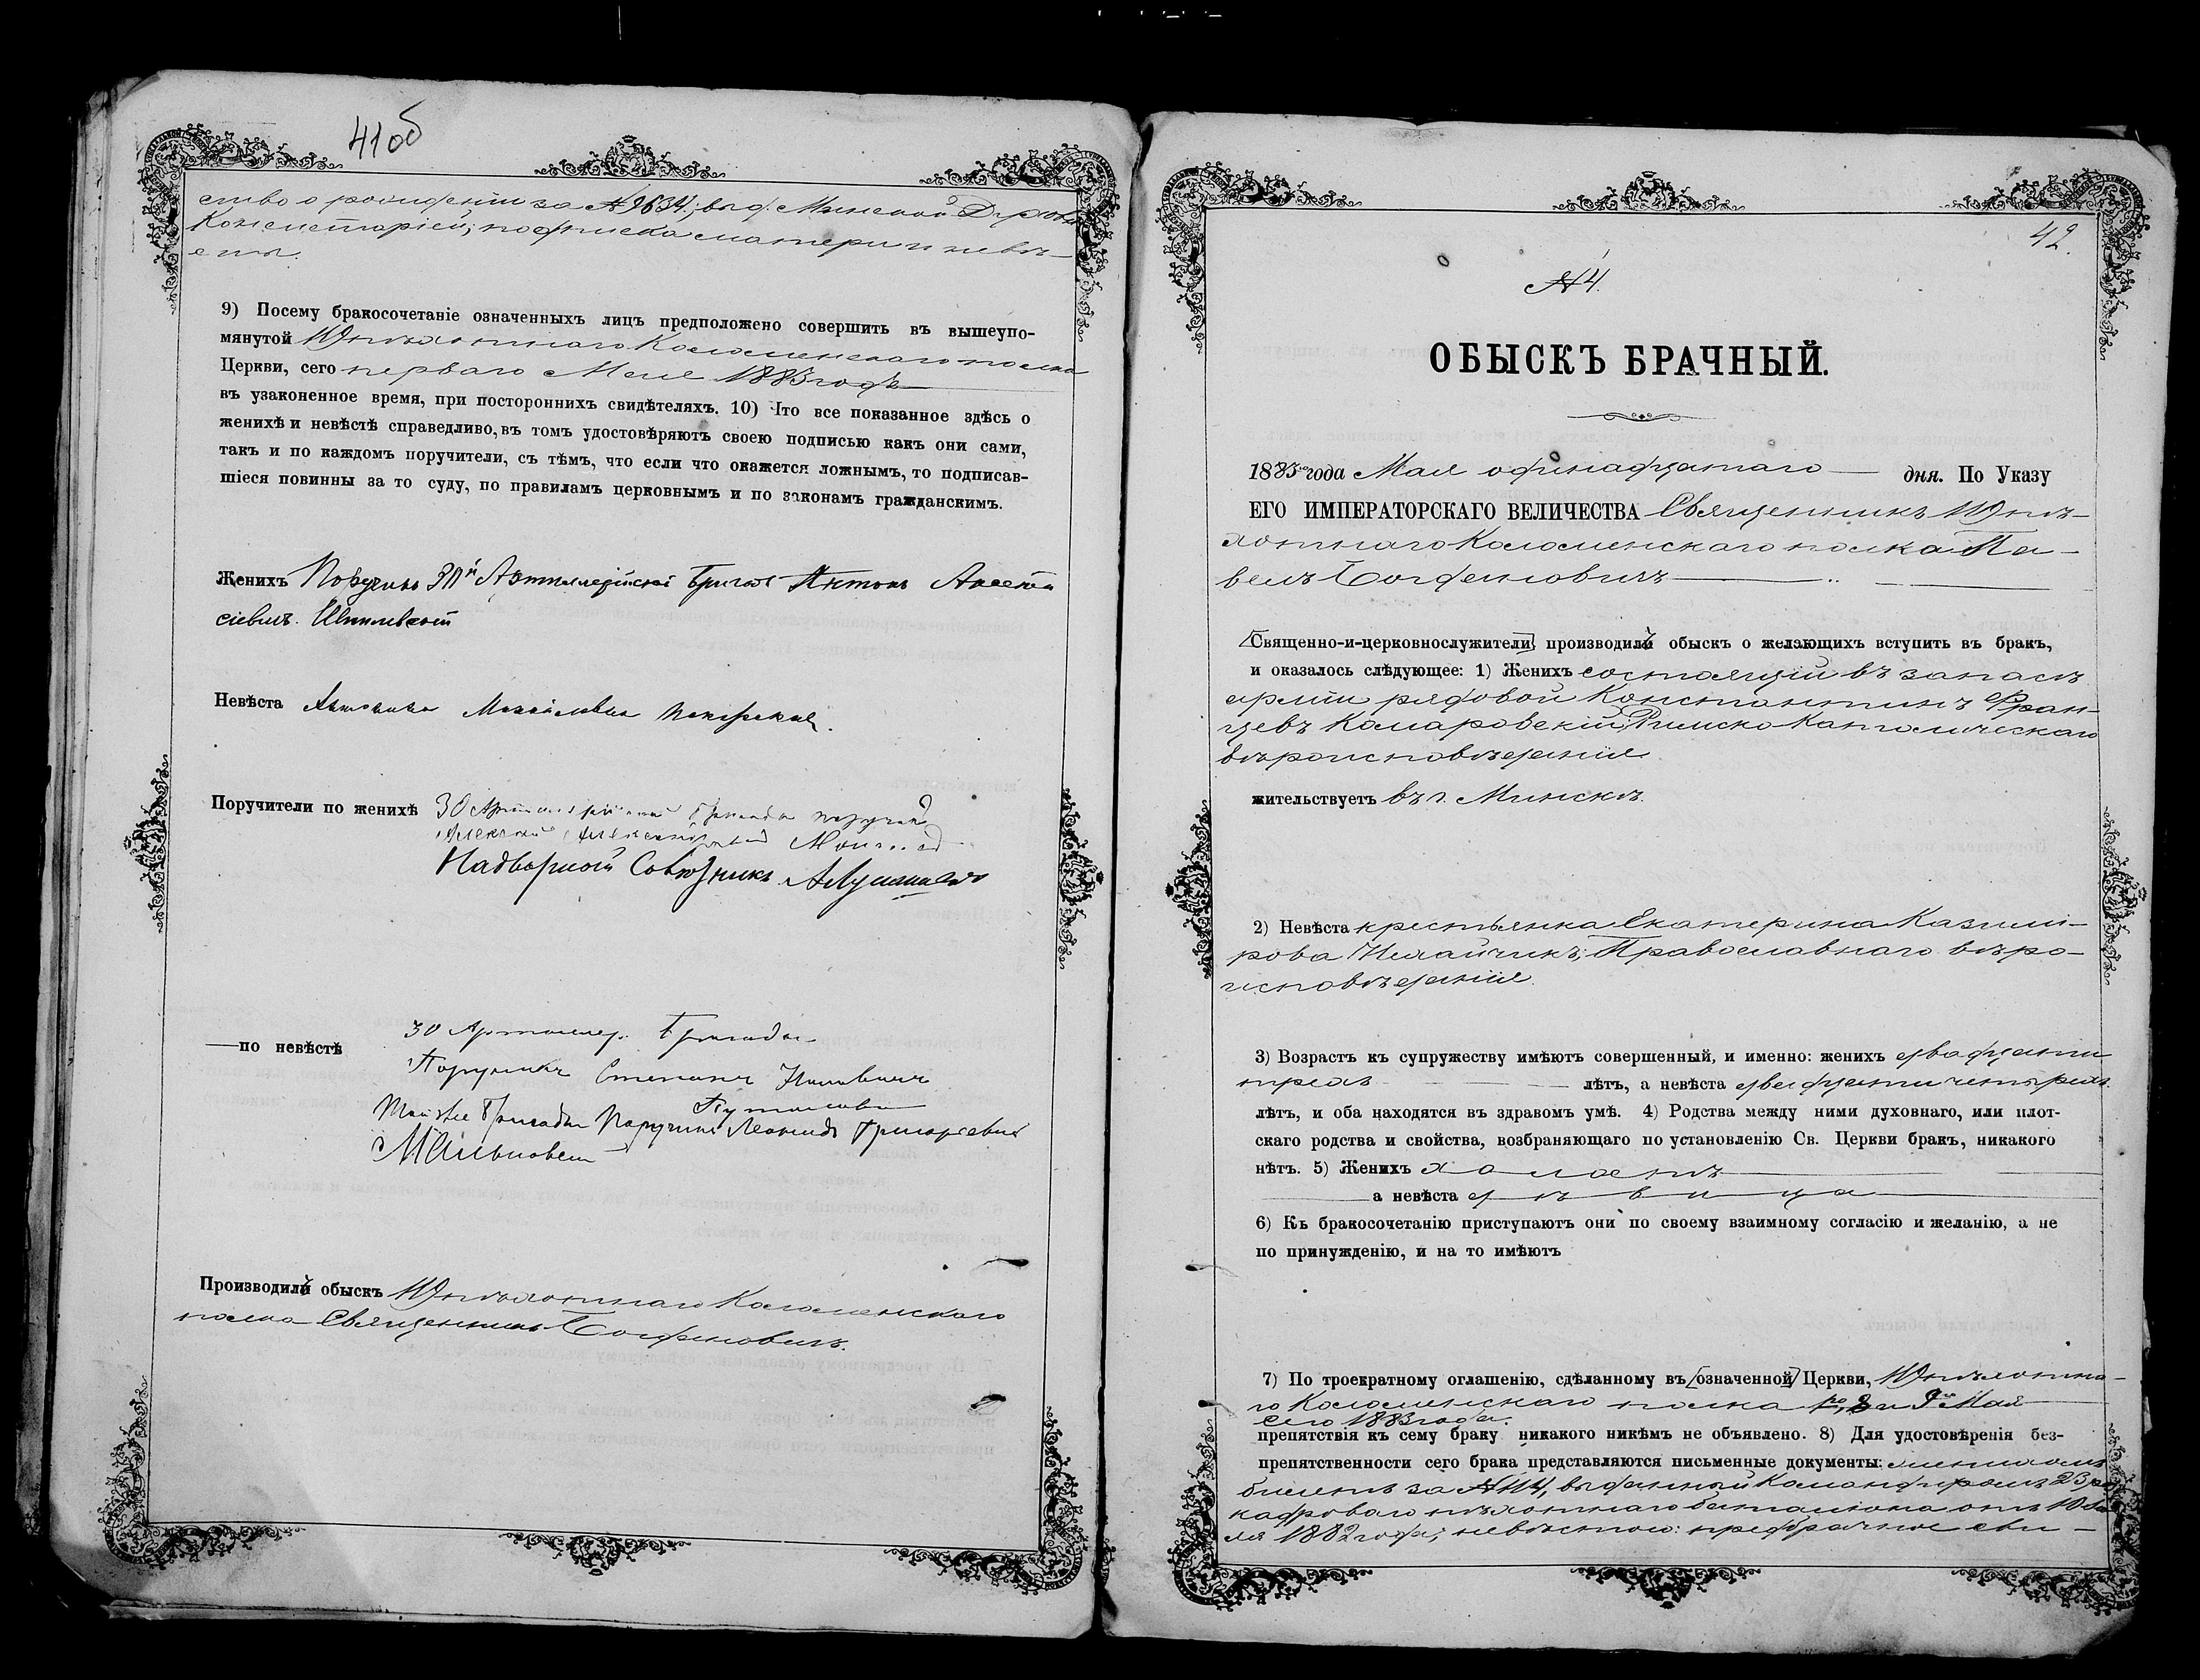 41об
ство о рождении за №9634, выд. Минской Духовн.
Консисторіей; подписка матери и невѣ-
сты.
9) Посему бракосочетаніе означенныхъ лицъ предположено совершить въ вышеупо-
мянутой 119 пѣхотнаго Коломенскаго полка
Церкви, сего перваго Мая 1883 года
въ узаконенное время, при постороннихъ свидѣтеляхъ. 10) Что все показанное здѣсь о
женихѣ и невѣстѣ справедливо, въ томъ удостовѣряютъ своею подписью какъ они сами,
такъ и по каждомъ поручители, съ тѣмъ, что если что окажется ложнымъ, то подписав-
шіеся повинны за то суду, по правиламъ церковнымъ и по законамъ гражданскимъ.
Женихъ Поручикъ 30й Артиллерійской Бригады Антонъ
Невѣста Антонина
Поручители по женихѣ 30 Артиллерійской бригады поручикъ
Надворный Совѣтникъ
—по невѣстѣ 30 Артиллер. Бригады
Поручикъ Степанъ
Той же Бригады Поручикъ Леонидъ Григорьевичъ
Производилъ обыскъ 119 пѣхотнаго Коломенскаго
полка Священникъ Богдановичъ.
42.
№ 4.
ОБЫСКЪ БРАЧНЫЙ.
1883 года Мая одинадцатаго дня. По Указу
ЕГО ИМПЕРАТОРСКАГО ВЕЛИЧЕСТВА Священникъ 119 пѣ-
хотнаго Коломенскаго полка Па-
велъ Богдановичъ
Священно-и-церковнослужители производилъ обыскъ о желающихъ вступить въ бракъ,
и оказалось слѣдующее: 1) Женихъ состоящій въ запасѣ
арміи рядовой Константинъ Фран-
цевъ Комаровскій, Римско Католическаго
вѣроисповѣданія
жительствуетъ въ г. Минскѣ.
2) Невѣста крестьянка Екатерина Казимі-
рова Нехайчикъ, Православнаго вѣро-
исповѣданія.
3) Возрастъ къ супружеству имѣютъ совершенный, и именно: женихъ двадцати
трехъ лѣтъ, а невѣста двадцати четырехъ
лѣтъ, и оба находятся въ здравомъ умѣ. 4) Родства между ними духовнаго, или плот-
скаго родства и свойства, возбраняющаго по установленію Св. Церкви бракъ, никакого
нѣтъ. 5) Женихъ холостъ
а невѣста дѣвица
6) Къ бракосочетанію приступаютъ они по своему взаимному согласію и желанію, а не
по принужденію, и на то имѣютъ
7) По троекратному оглашенію, сдѣланному въ означенной Церкви, 119 пѣхотна-
го Коломенскаго полка 8 и 9 Мая
сего 1883 года.
препятствія къ сему браку никакого никѣмъ не объявлено. 8) Для удостовѣренія без-
препятственности сего брака представляются письменные документы: женихомъ
билетъ за №114, выданный Командиромъ 23 ре
кадроваго пѣхотнаго баталіона отъ 10
ля 1882 года; невѣстою: предбрачное сви-